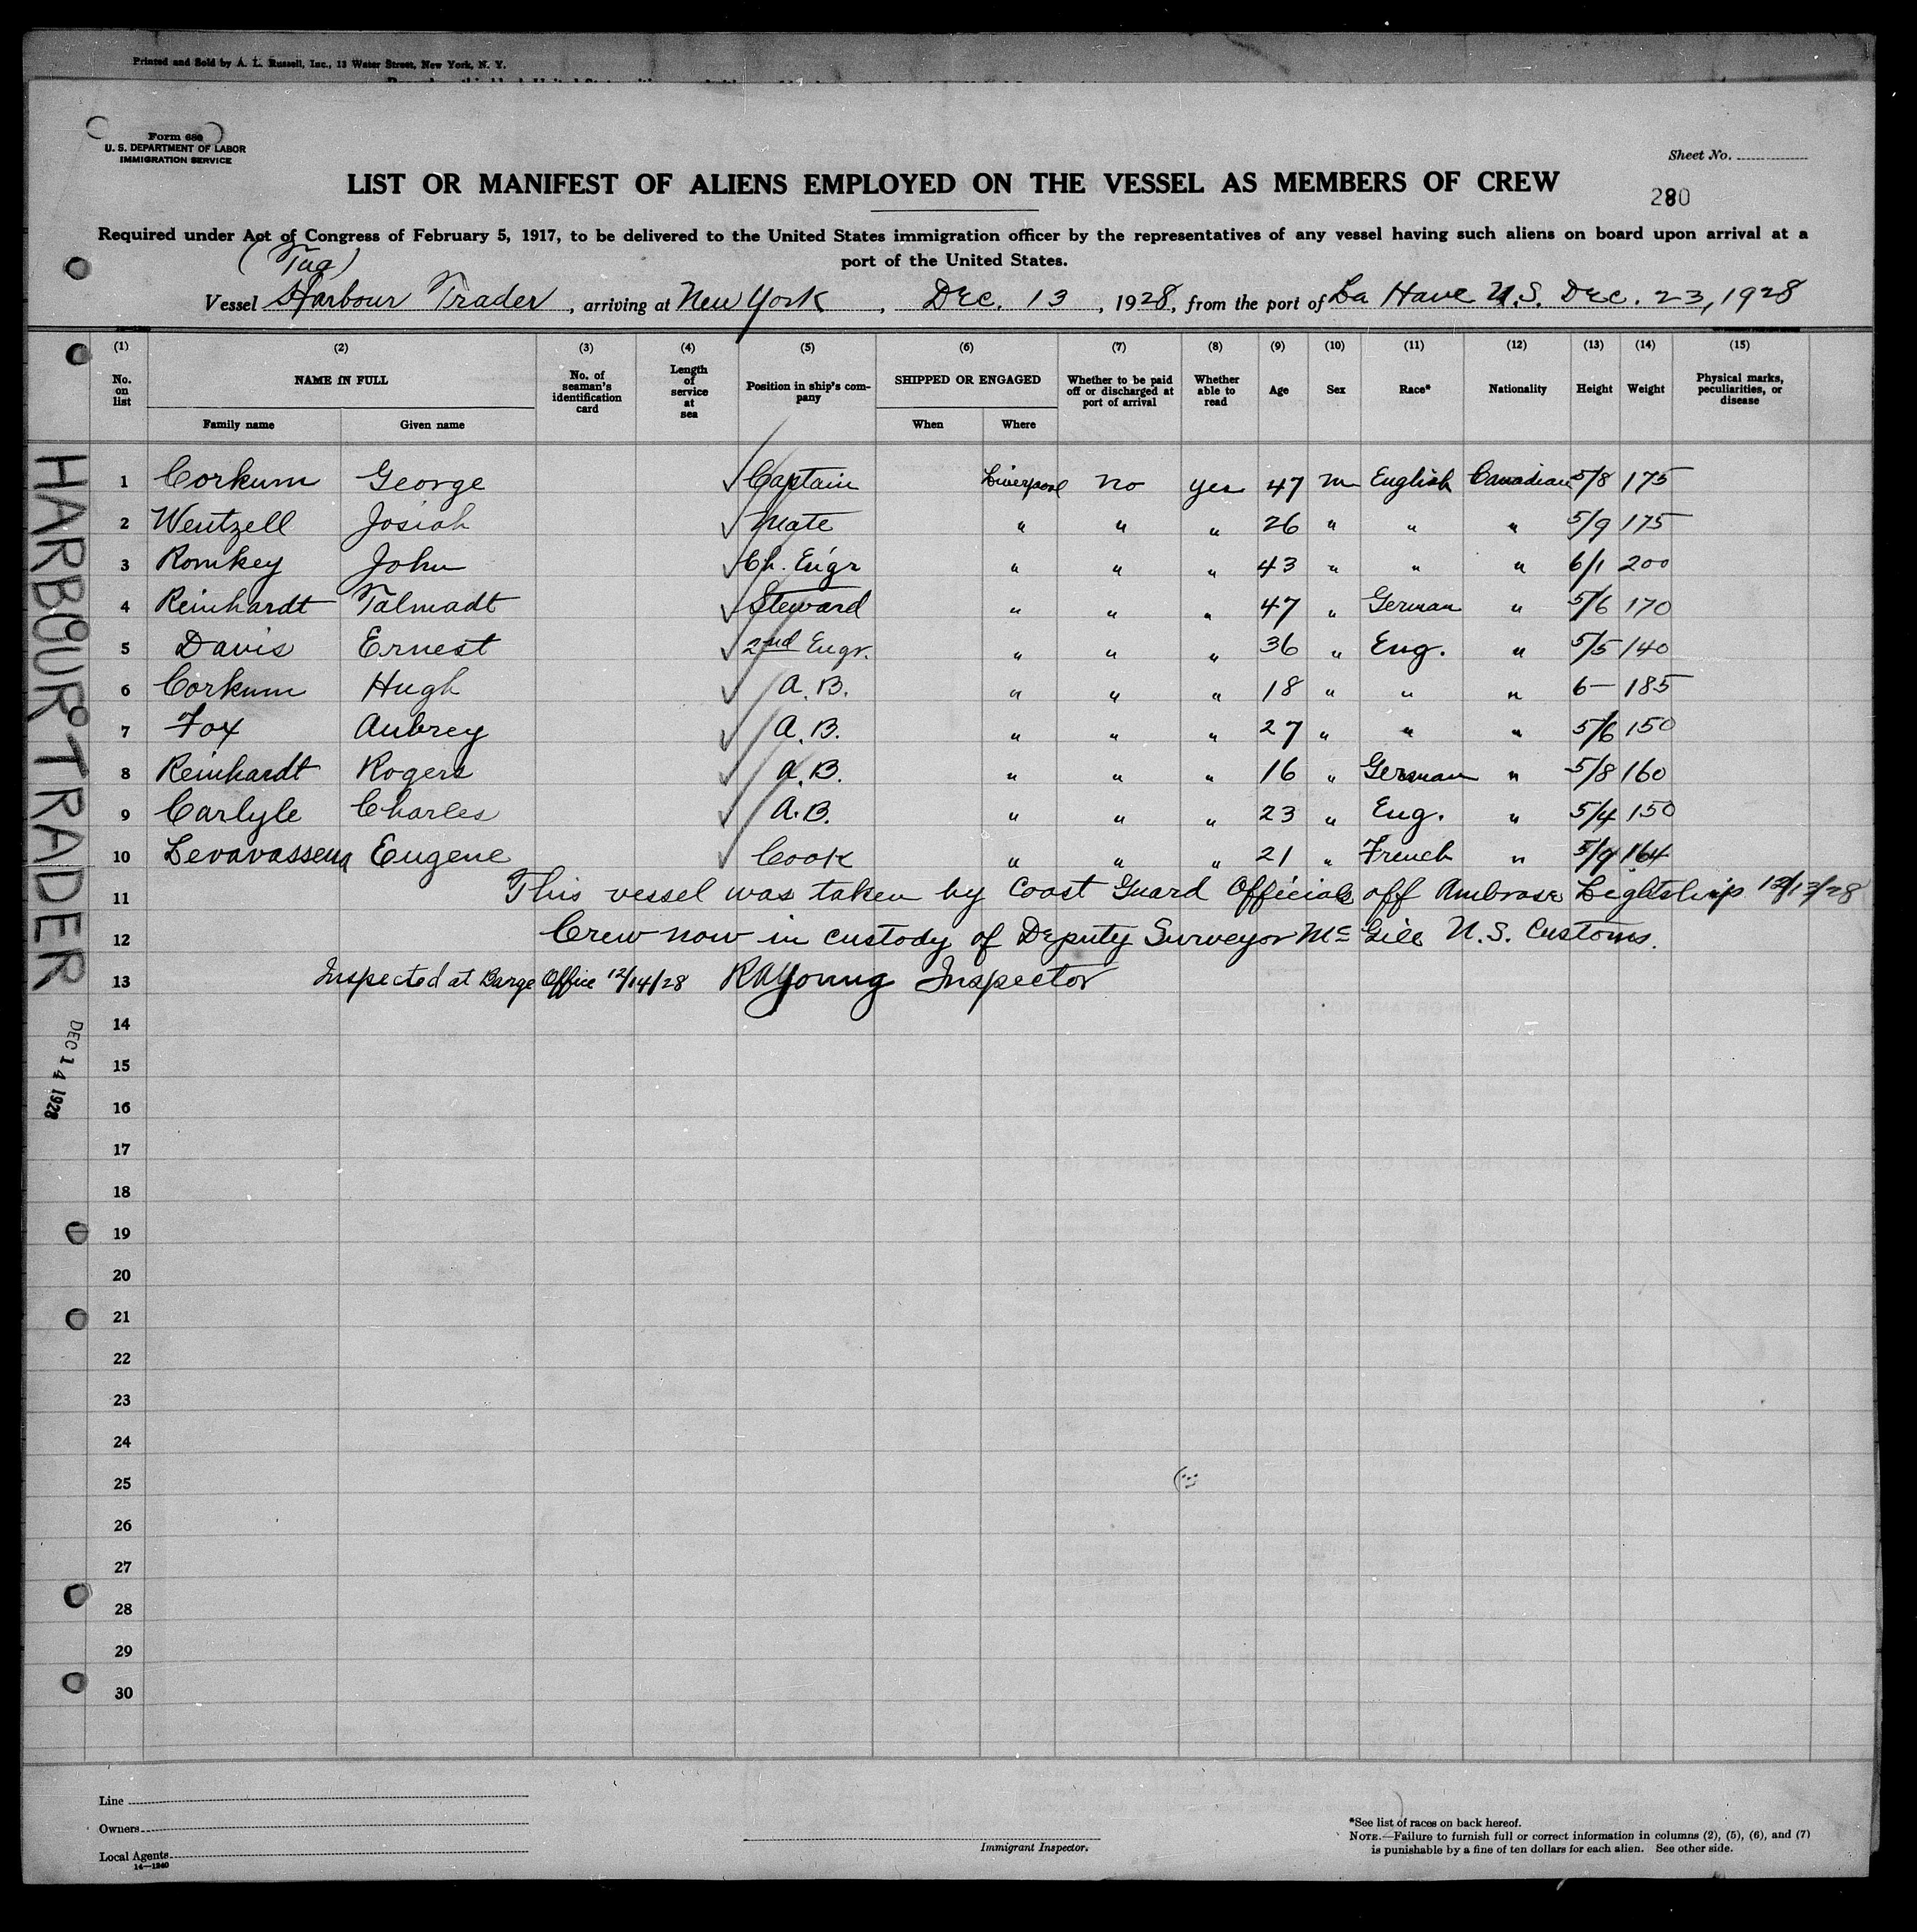 Printed and Sold by A. L. Russell, Inc., 13 Water Street, New York, N. Y.
Form 680
U. S. DEPARTMENT OF LABOR
IMMIGRATION SERVICE
Sheet No.
LIST OR MANIFEST OF ALIENS EMPLOYED ON THE VESSEL AS MEMBERS OF CREW
280
Required under Act of Congress of February 5, 1917, to be delivered to the United States immigration officer by the representatives of any vessel having such aliens on board upon arrival at a
port of the United States.
(Tug)
Vessel Harbour Trader, arriving at New York, Dec. 13, 1928, from the port of La Have N.S. Dec. 23, 1928
(1) (2) (3) (4) (5) (6) (7) (8) (9) (10) (11) (12) (13) (14) (15)
No. on list NAME IN FULL No. of seaman's identification card Length of service at sea Position in ship's company SHIPPED OR ENGAGED Whether to be paid off or discharged at port of arrival Whether able to read Age Sex Race* Nationality Height Weight Physical marks, peculiarities, or disease
Family name Given name When Where
1 Corkum George ✓ Captain Liverpool no yes 47 m English Canadian 5/8 175
2 Wentzell Josiah ✓ Mate " " " 26 " " " 5/9 175
3 Romkey John ✓ Ch. Eng'r " " " 43 " " " 6/1 200
4 Reinhardt Talmadt ✓ Steward " " " 47 " German " 5/6 170
5 Davis Ernest ✓ 2nd Engr. " " " 36 " Eng. " 5/5 140
6 Corkum Hugh ✓ A.B. " " " 18 " " " 6- 185
7 Fox Aubrey ✓ A.B. " " " 27 " " " 5/6 150
8 Reinhardt Rogers ✓ A.B. " " " 16 " German " 5/8 160
9 Carlyle Charles ✓ A.B. " " " 23 " Eng. " 5/4 150
10 Levavasseur Eugene ✓ Cook " " " 21 " French " 5/9 164
11 This vessel was taken by Coast Guard Officials off Ambrose Lightship 12/13/28
12 Crew now in custody of Deputy Surveyor McGill U.S. Customs.
13 Inspected at Barge Office 12/14/28 RAYoung Inspector
14
15
16
17
18
19
20
21
22
23
24
25
26
27
28
29
30
HARBOUR TRADER
DEC 14 1928
Line
Owners
Local Agents
14—1240
Immigrant Inspector.
*See list of races on back hereof.
NOTE.—Failure to furnish full or correct information in columns (2), (5), (6), and (7)
is punishable by a fine of ten dollars for each alien. See other side.